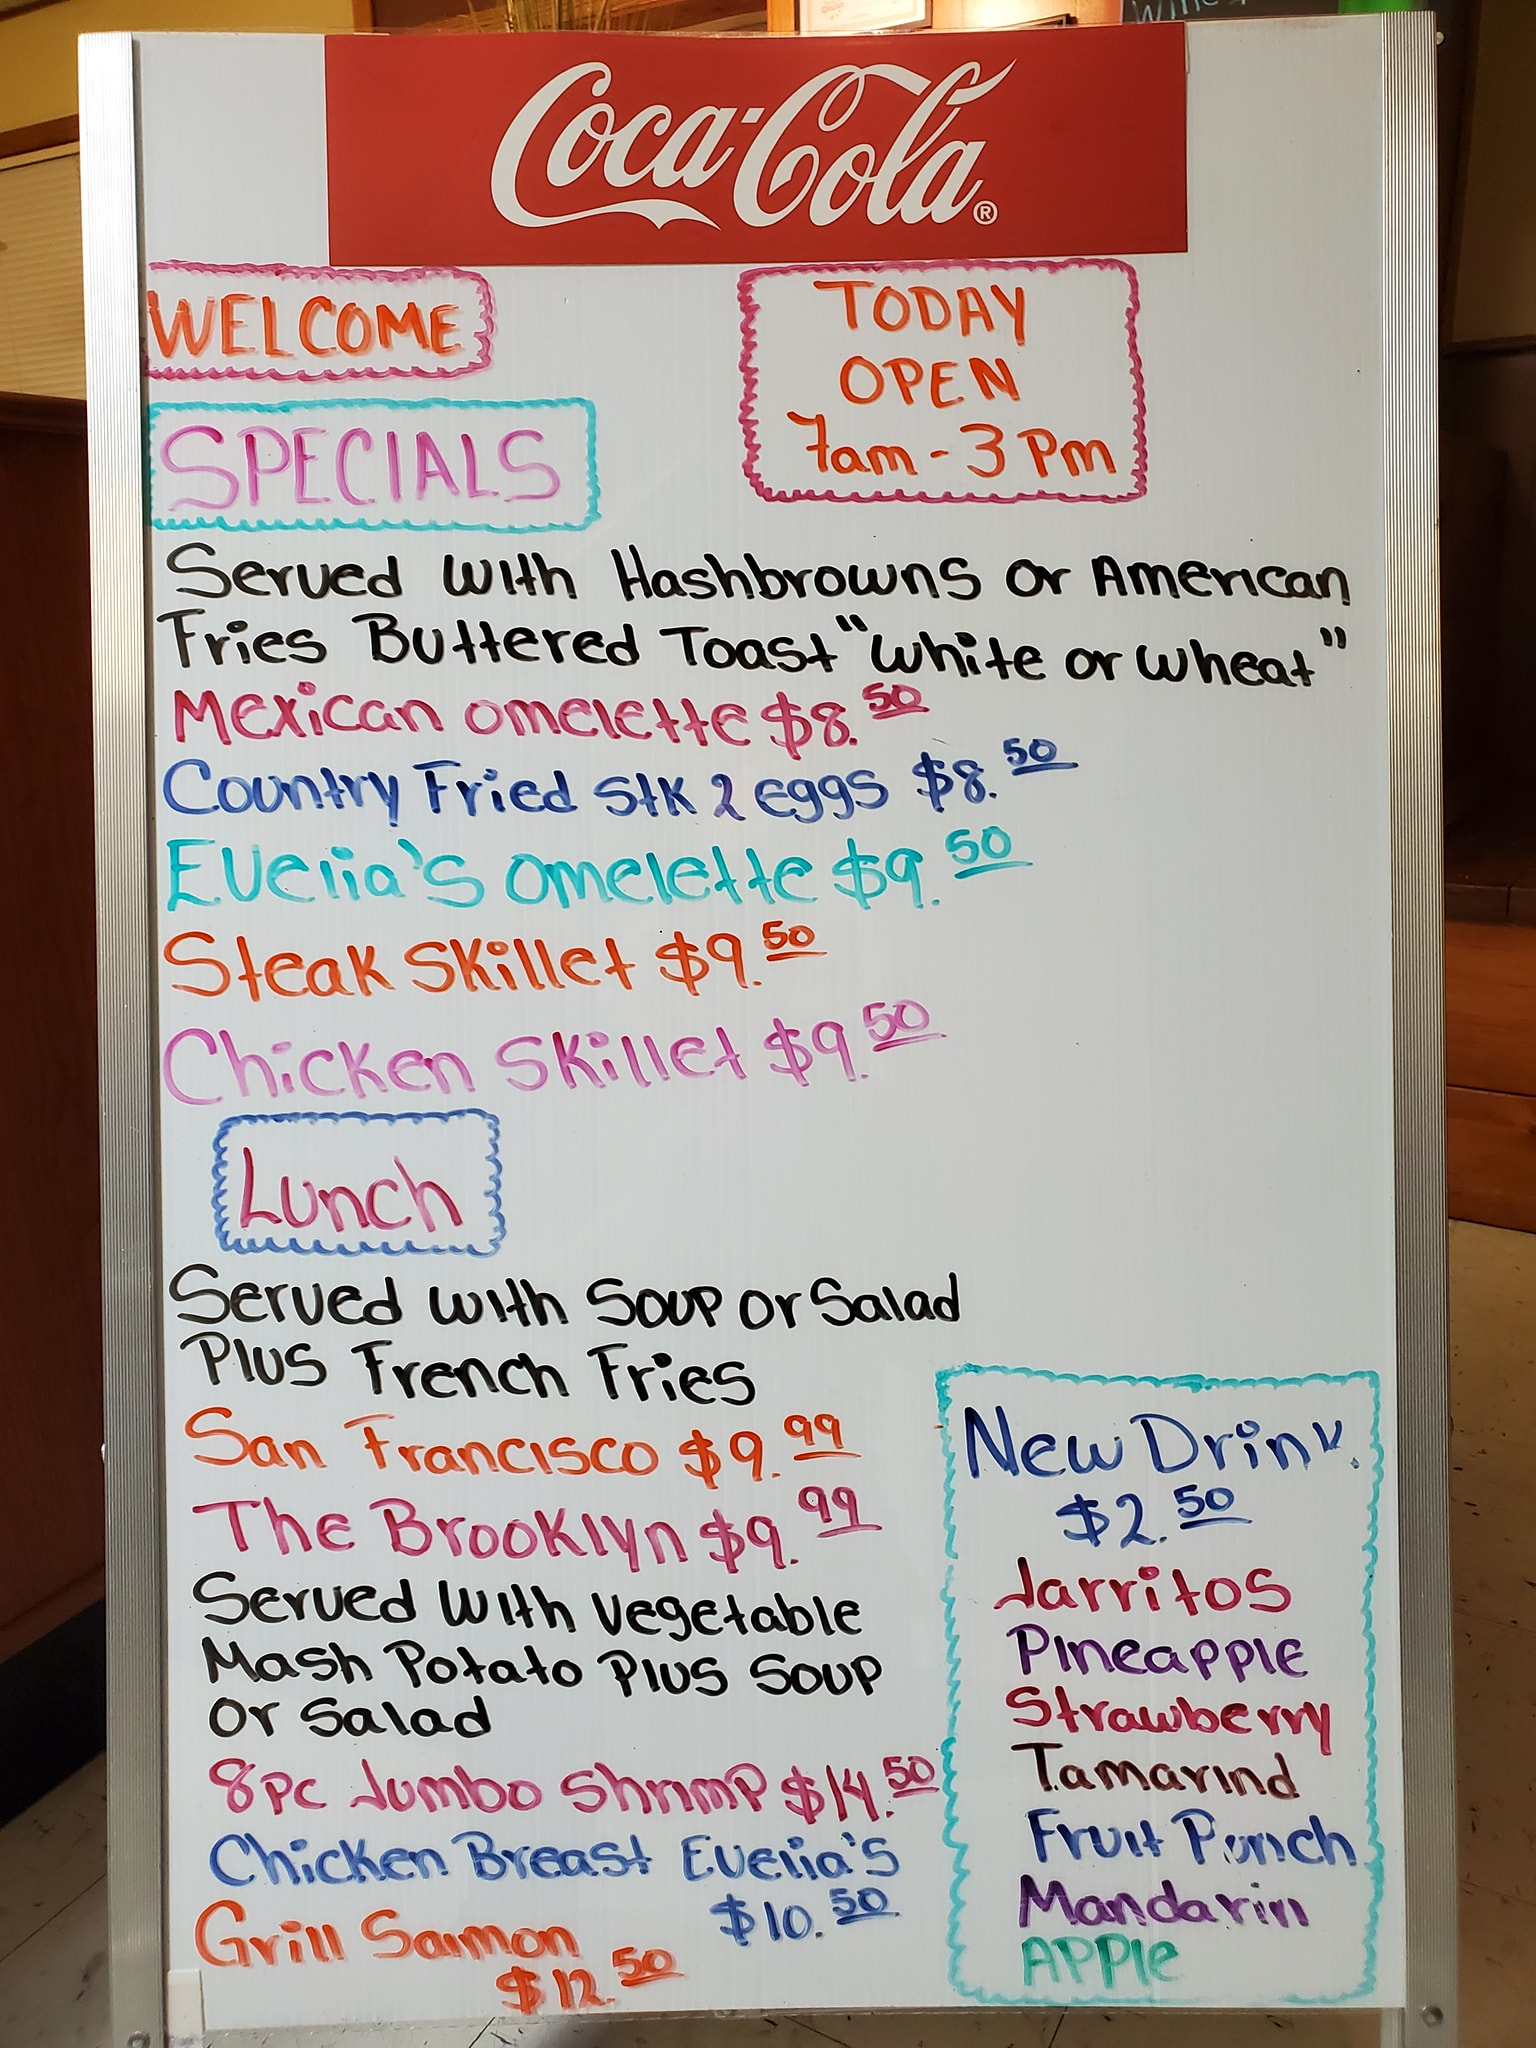 Coca-Cola®
WELCOME
TODAY
OPEN
7am - 3 Pm
SPECIALS
Served with Hashbrowns or American
Fries Buttered Toast "White or Wheat"
Mexican omelette $8.50
Country Fried Stk 2 eggs $8.50
Evelia's omelette $9.50
Steak Skillet $9.50
Chicken Skillet $9.50
Lunch
Served with Soup or Salad
Plus French Fries
San Francisco $9.99
The Brooklyn $9.99
Served with Vegetable
Mash Potato Plus Soup
or Salad
8pc Jumbo Shrimp $14.50
Chicken Breast Evelia's
$10.50
Grill Salmon
$12.50
New Drink.
$2.50
Jarritos
Pineapple
Strawberry
Tamarind
Fruit Punch
Mandarin
Apple